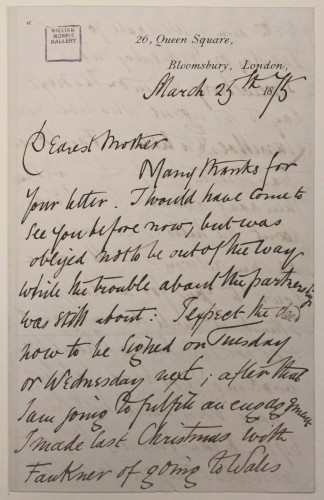 WILLIAM
MORRIS
GALLERY
26, Queen Square,
Bloomsbury, London,
March 25th 1875
Dearest Mother
Many thanks for
your letter. I would have come to
see you before now, but was
obliged not to be out of the way
while the trouble about the partnership
was still about: I expect the deed
now to be signed on Tuesday
or Wednesday next; after that
I am going to fulfill an engagement
I made last Christmas with
Faulkner of going to Wales